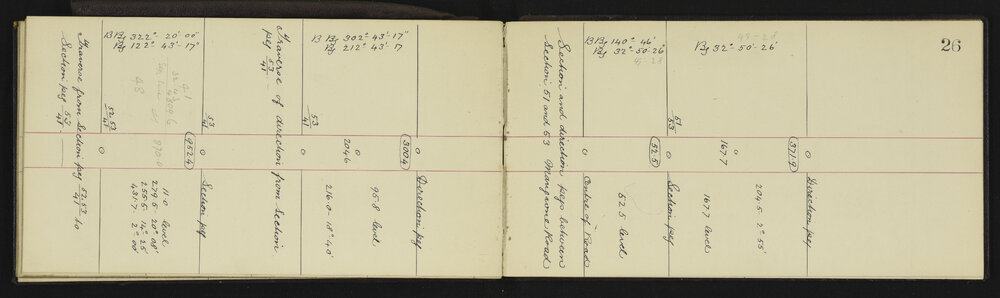 26
B Bg 322° 20' 00"
Bg 122° 43'-17"
B Bg 302° 43'-17"
Bg 212° 43'-17
B Bg 140° 46'
Bg 32° 50'-26"
Bg 32° 50'-26'
Traverse from Section peg 52.53/41 to
Section peg 53/41
52.53/41
0
952.4
53/41
0
Section peg
11.0 level
279.5 20° 08'
255.5 14° 25'
431.7 2° 00'
870.0
48
Traverse of direction from Section
peg 53/41
53/41
0
204.6
300.4
0
Direction peg
95.8 level
216.0 18° 40'
Section and direction pegs between
Section 51 and 53 Mangarone Road
0
Centre of Road
52.5
52.5 level
51/53
0
Section peg
167.7
0
167.7 level
371.9
204.5 2° 55'
0
Direction peg